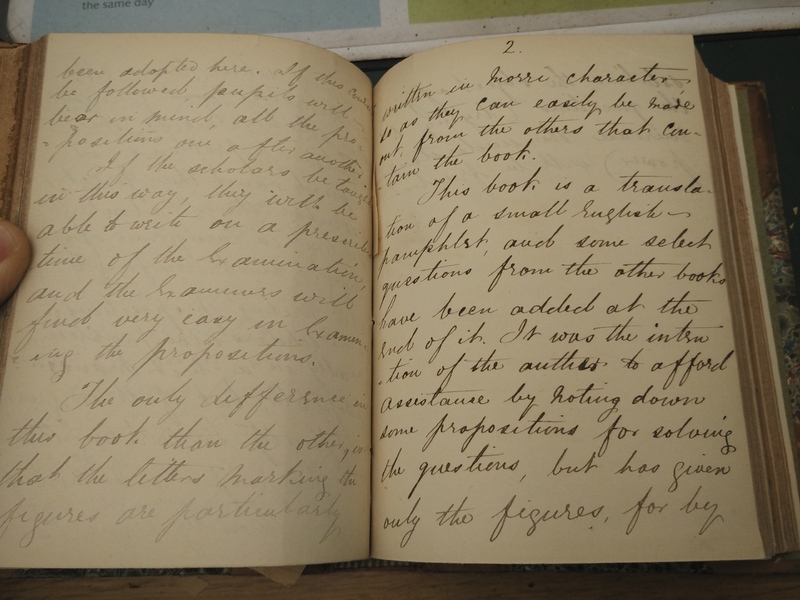 the same day
been adopted here. If this
be followed pupils will
bear in mind, all the pro-
-positions one after another
If the scholars be taught
in this way, they will be
able to write on a prescribed
time of the Examination,
and the Examiners will
find very easy in Examin-
-ing the propositions.
The only difference in
this book than the other, is
that the letters marking the
figures are particularly
2.
written in Morri character
so as they can easily be made
out from the others that con-
tain the book.
This book is a transla-
tion of a small English
pamphlet, and some select
questions from the other books
have been added at the
end of it. It was the inten
-tion of the author to afford
assistance by noting down
some propositions for solving
the questions, but has given
only the figures, for by